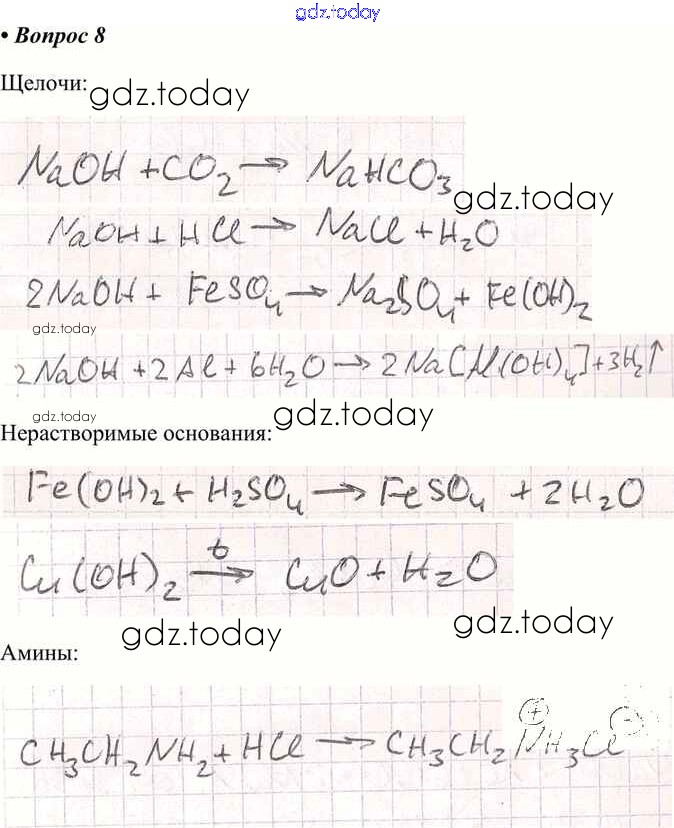 gdz.today
• Вопрос 8
Щелочи:
gdz.today
NaOH + CO₂ → NaHCO₃
gdz.today
NaOH + HCl → NaCl + H₂O
2NaOH + FeSO₄ → Na₂SO₄ + Fe(OH)₂
gdz.today
2NaOH + 2Al + 6H₂O → 2Na[Al(OH)₄] + 3H₂↑
gdz.today
gdz.today
Нерастворимые основания:
Fe(OH)₂ + H₂SO₄ → FeSO₄ + 2H₂O
t
Cu(OH)₂ → CuO + H₂O
gdz.today
gdz.today
Амины:
CH₃CH₂NH₂ + HCl → CH₃CH₂N⊕H₃Cl⊖